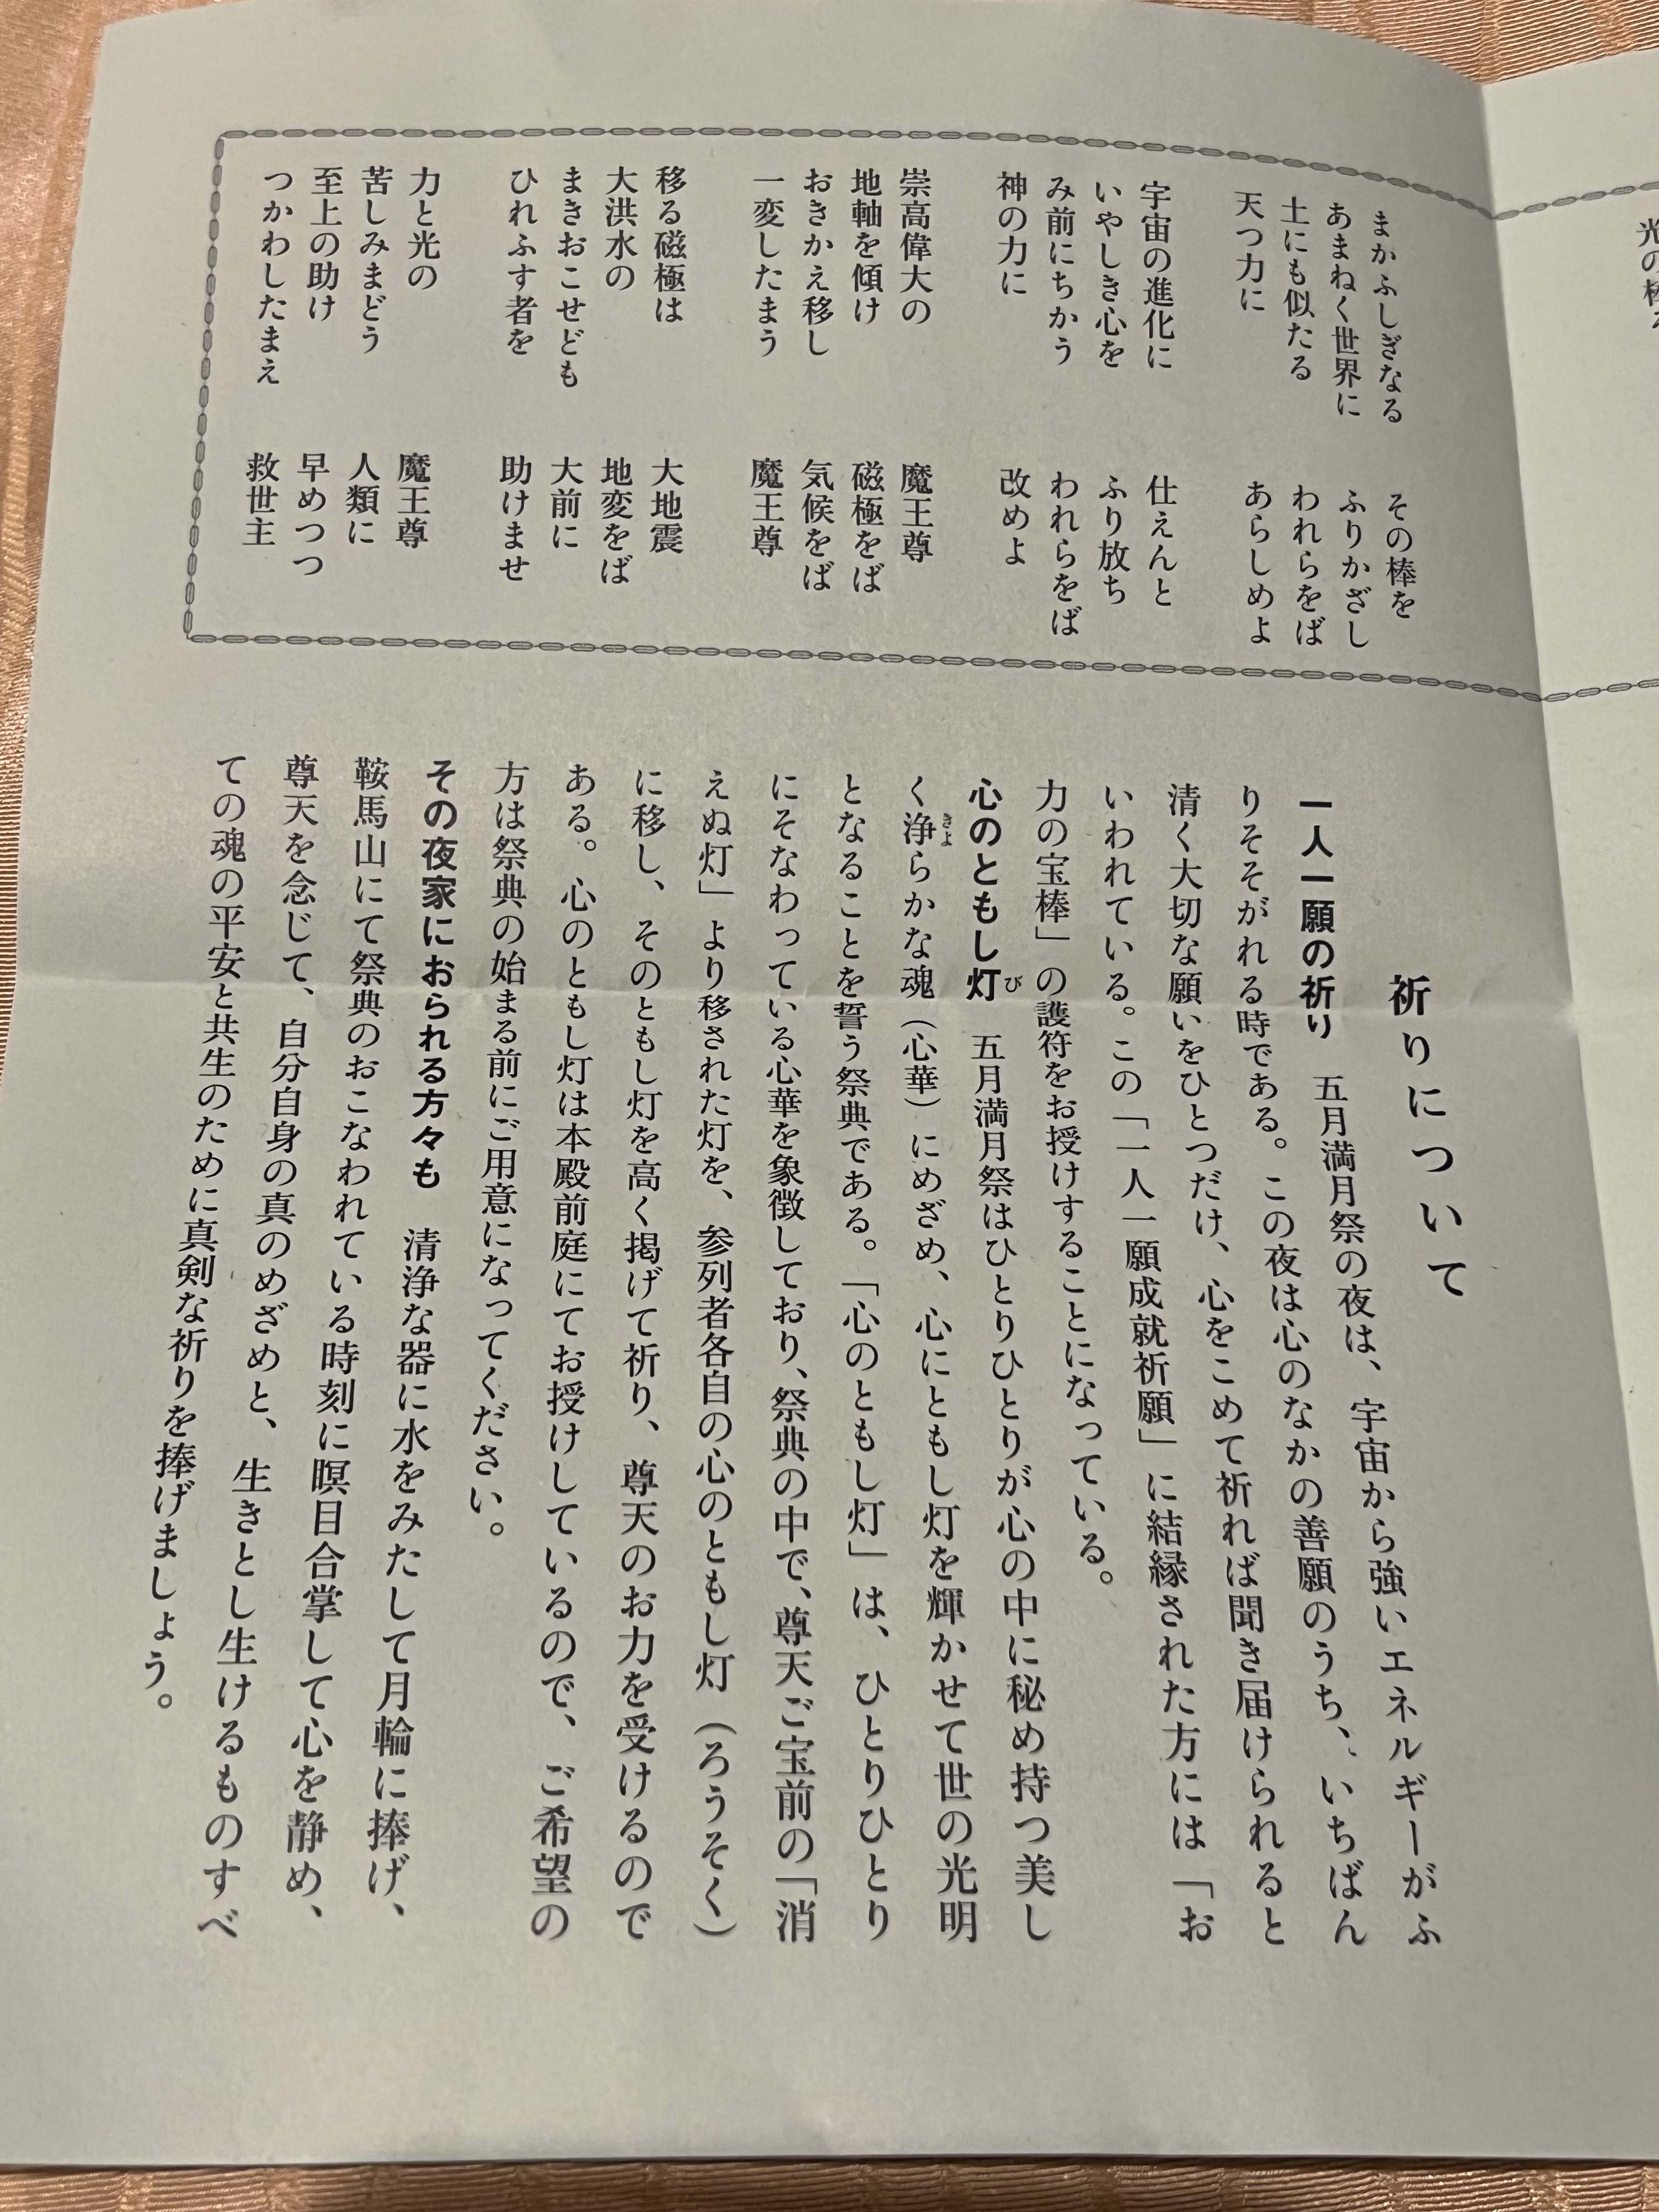 光の
まかふしぎなる　その棒を
あまねく世界に　ふりかざし
土にも似たる　われらをば
天つ力に　あらしめよ
宇宙の進化に　仕えんと
いやしき心を　ふり放ち
み前にちかう　われらをば
神の力に　改めよ
崇高偉大の　魔王尊
地軸を傾け　磁極をば
おきかえ移し　気候をば
一変したまう　魔王尊
移る磁極は　大地震
大洪水の　地変をば
まきおこせども　大前に
ひれふす者を　助けませ
力と光の　魔王尊
苦しみまどう　人類に
至上の助け　早めつつ
つかわしたまえ　救世主
祈りについて
一人一願の祈り　五月満月祭の夜は、宇宙から強いエネルギーがふ
りそそがれる時である。この夜は心のなかの善願のうち、いちばん
清く大切な願いをひとつだけ、心をこめて祈れば聞き届けられると
いわれている。この「一人一願成就祈願」に結縁された方には「お
力の宝棒」の護符をお授けすることになっている。
心のともし灯び　五月満月祭はひとりひとりが心の中に秘め持つ美し
く浄きよらかな魂（心華）にめざめ、心にともし灯を輝かせて世の光明
となることを誓う祭典である。「心のともし灯」は、ひとりひとり
にそなわっている心華を象徴しており、祭典の中で、尊天ご宝前の「消
えぬ灯」より移された灯を、参列者各自の心のともし灯（ろうそく）
に移し、そのともし灯を高く掲げて祈り、尊天のお力を受けるので
ある。心のともし灯は本殿前庭にてお授けしているので、ご希望の
方は祭典の始まる前にご用意になってください。
その夜家におられる方々も　清浄な器に水をみたして月輪に捧げ、
鞍馬山にて祭典のおこなわれている時刻に瞑目合掌して心を静め、
尊天を念じて、自分自身の真のめざめと、生きとし生けるものすべ
ての魂の平安と共生のために真剣な祈りを捧げましょう。